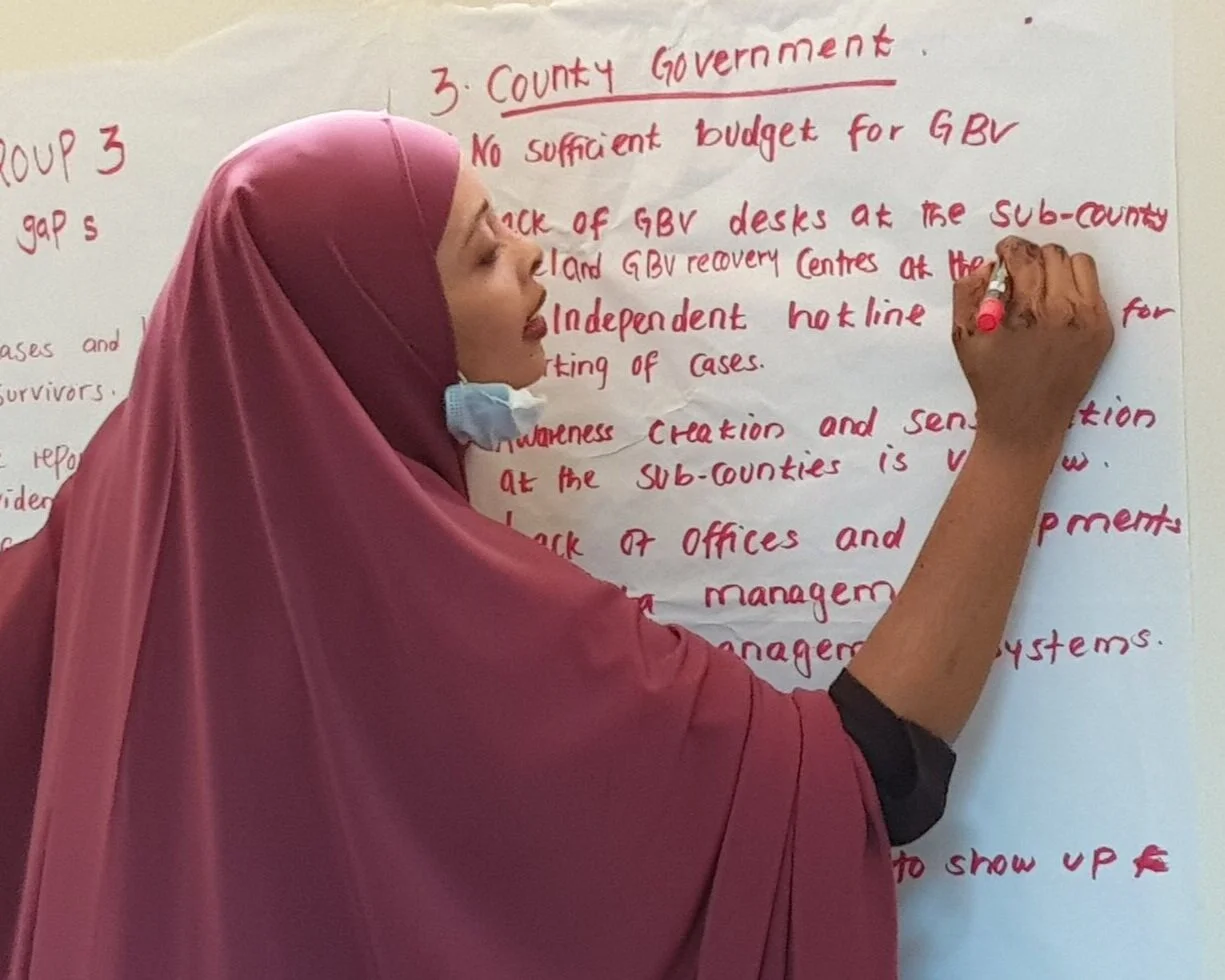 GROUP 3
gaps
ases and
survivors.
repo
viden
3. County Government.
No sufficient budget for GBV
ack of GBV desks at the sub-county
el and GBV recovery Centres at the
Independent hotline for
rting of cases.
Awareness creation and sens tion
at the sub-counties is v w.
Lack of offices and pments
a managem
anagem systems.
to show up